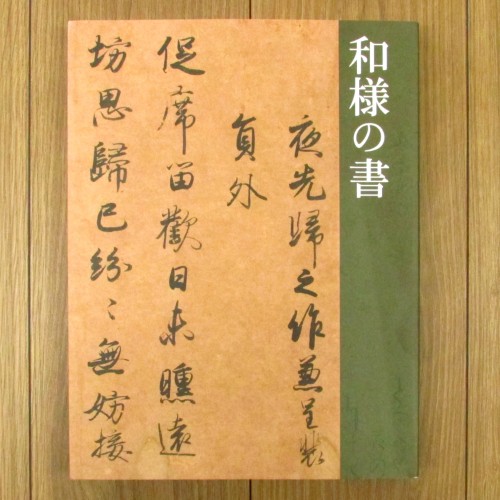 和様の書
夜先歸之作兼呈裴
員外
促席留歡日未曛遠
坊思歸已紛々無妨接